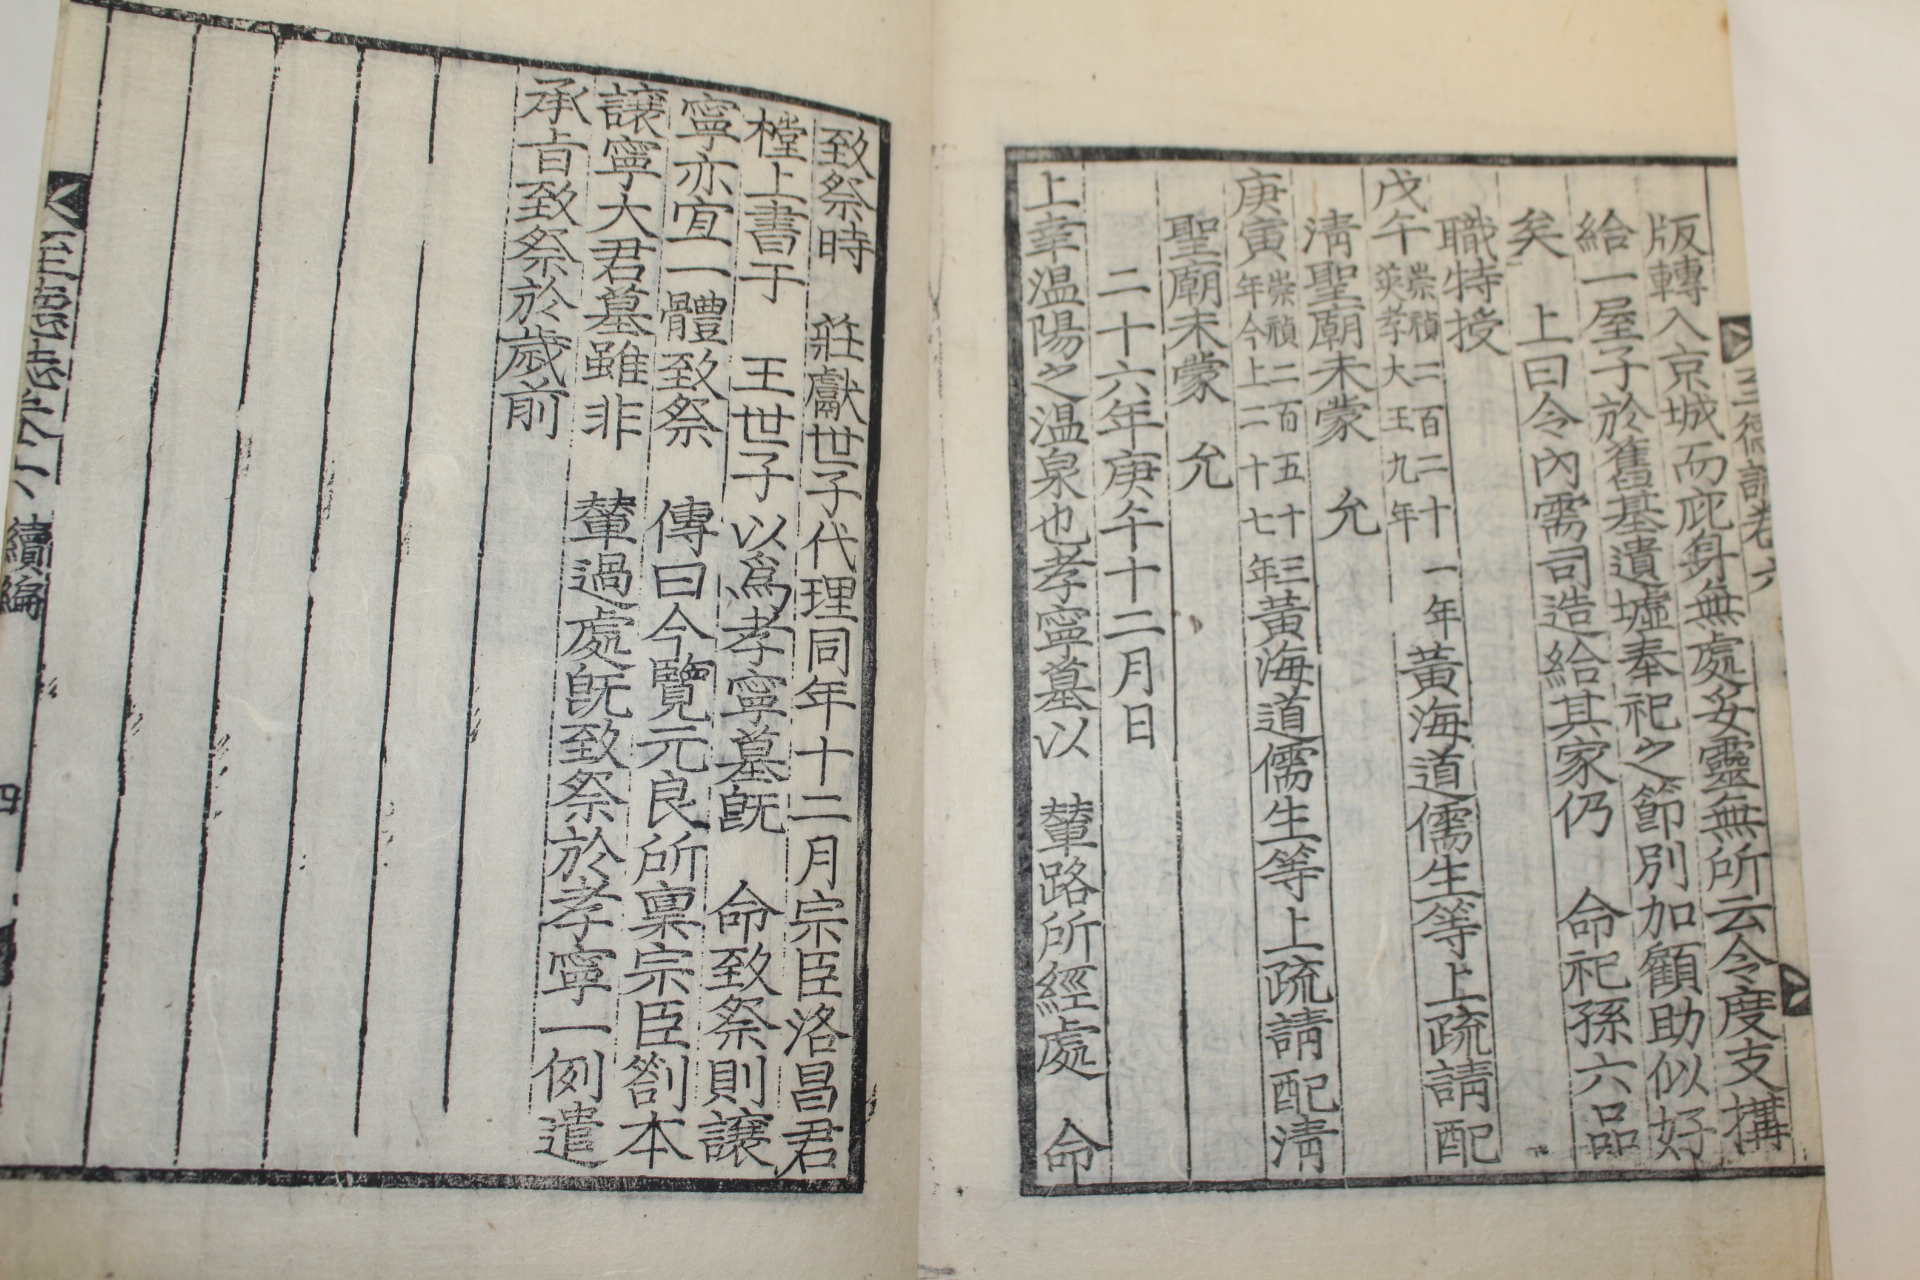 三德誌卷六
版轉入京城而庇身無處妥靈無所云今度支搆
給一屋子於舊基遺墟奉祀之節別加顧助似好
矣 上曰令內需司造給其家仍 命祀孫六品
職特授
戊午崇禎二百二十一年英孝大王九年黃海道儒生等上疏請配
淸聖廟未蒙 允
庚寅崇禎二百五十三年今上二十七年黃海道儒生等上疏請配淸
聖廟未蒙 允
二十六年庚午十二月日
上幸温陽之温泉也孝寧墓以 輦路所經處 命
致祭時 莊獻世子代理同年十二月宗臣洛昌君
樘上書于 王世子以爲孝寧墓旣 命致祭則讓
寧亦宜一體致祭 傳曰今覽元良所稟宗臣劄本
讓寧大君墓雖非 輦過處旣致祭於孝寧一例遣
承旨致祭於歲前
三德誌卷六 續編
四